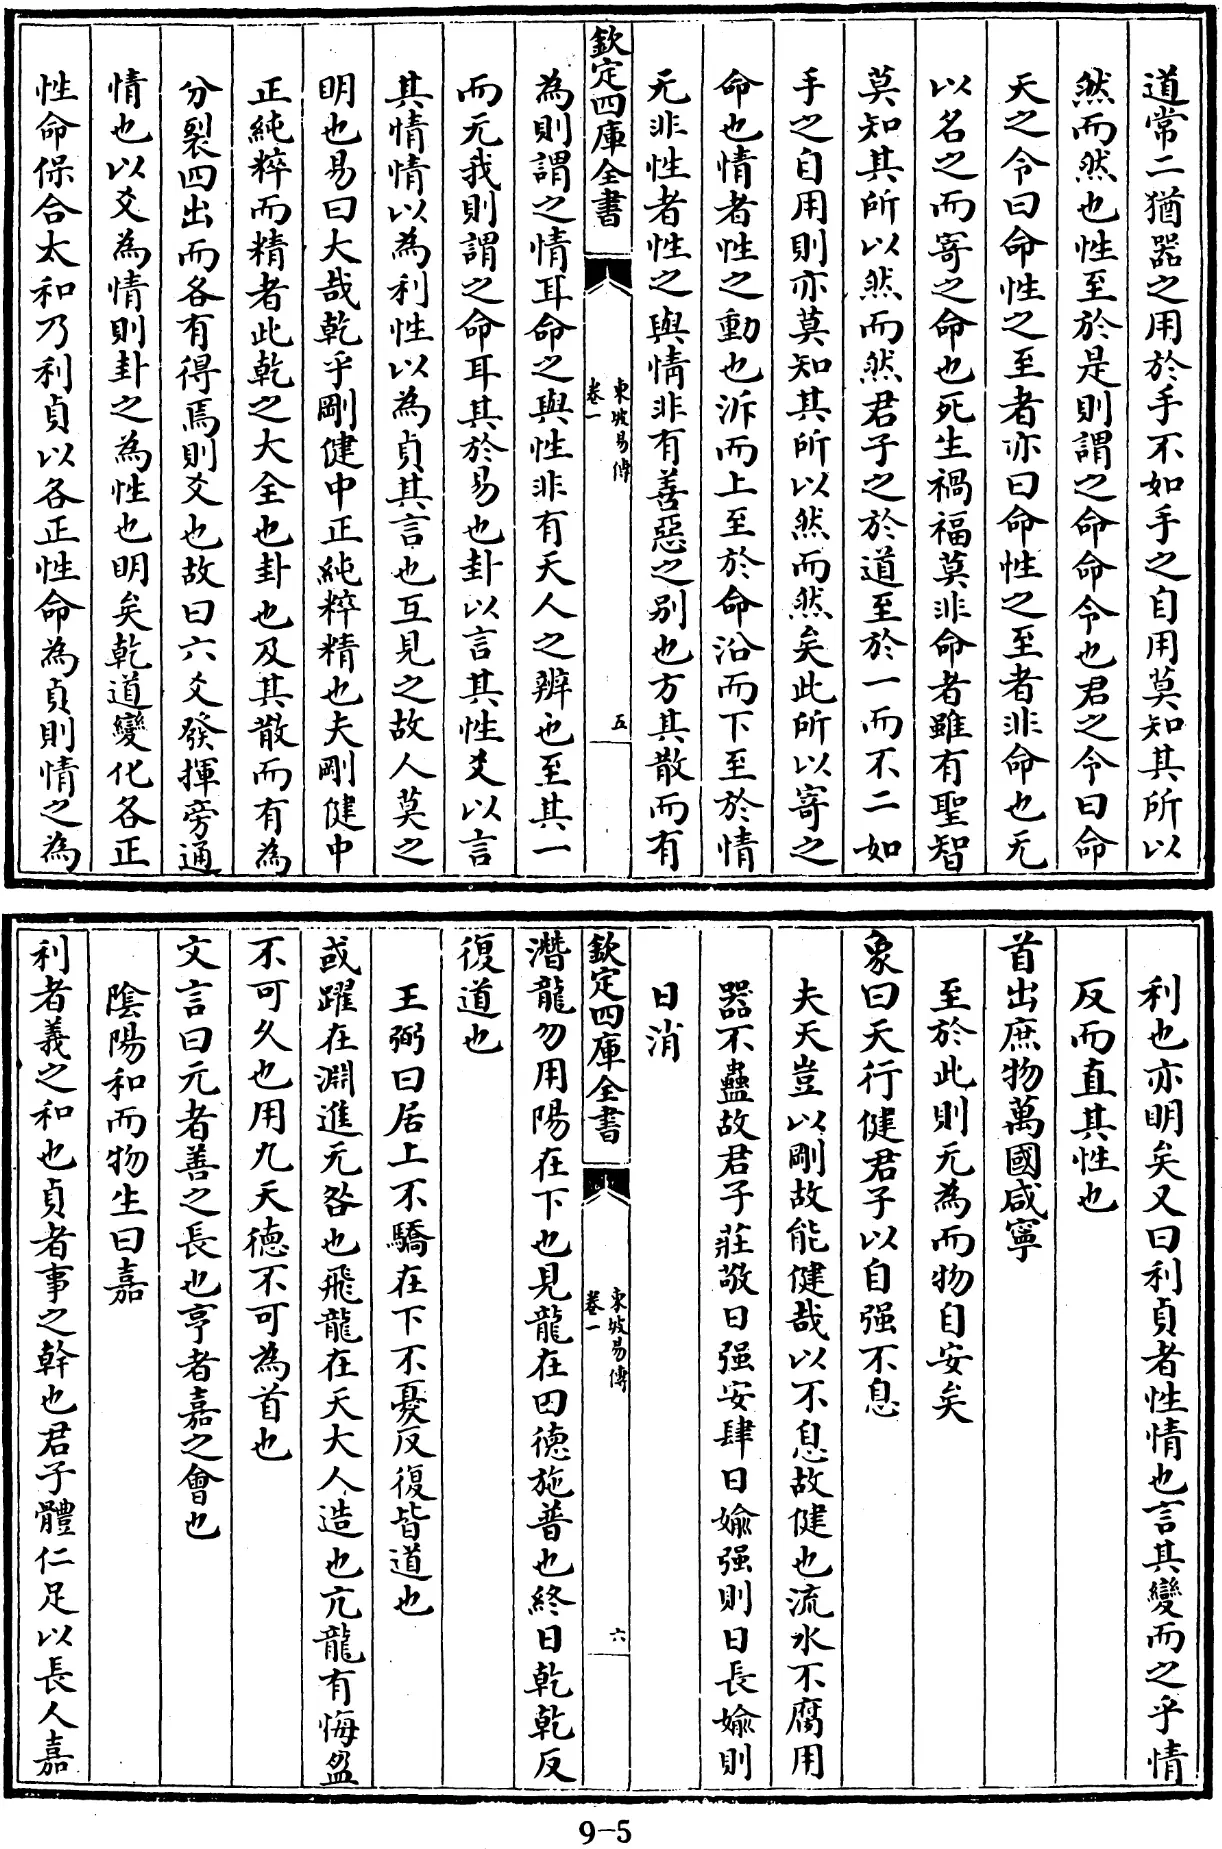 道常二猶器之用於手不如手之自用莫知其所以
然而然也性至於是則謂之命命令也君之令曰命
天之令曰命性之至者亦曰命性之至者非命也无
以名之而寄之命也死生禍福莫非命者雖有聖智
莫知其所以然而然君子之於道至於一而不二如
手之自用則亦莫知其所以然而然矣此所以寄之
命也情者性之動也泝而上至於命沿而下至於情
无非性者性之與情非有善惡之别也方其散而有
欽定四庫全書
東坡易傳
卷一
五
為則謂之情耳命之與性非有天人之辨也至其一
而无我則謂之命耳其於易也卦以言其性爻以言
其情情以為利性以為貞其言也互見之故人莫之
明也易曰大哉乾乎剛健中正純粹精也夫剛健中
正純粹而精者此乾之大全也卦也及其散而有為
分裂四出而各有得焉則爻也故曰六爻發揮旁通
情也以爻為情則卦之為性也明矣乾道變化各正
性命保合太和乃利貞以各正性命為貞則情之為
利也亦明矣又曰利貞者性情也言其變而之乎情
反而直其性也
首出庶物萬國咸寧
至於此則无為而物自安矣
象曰天行健君子以自强不息
夫天豈以剛故能健哉以不息故健也流水不腐用
器不蠱故君子莊敬日强安肆日媮强則日長媮則
日消
欽定四庫全書
東坡易傳
卷一
六
潛龍勿用陽在下也見龍在田德施普也終日乾乾反
復道也
王弼曰居上不驕在下不憂反復皆道也
或躍在淵進无咎也飛龍在天大人造也亢龍有悔盈
不可久也用九天德不可為首也
文言曰元者善之長也亨者嘉之會也
陰陽和而物生曰嘉
利者義之和也貞者事之幹也君子體仁足以長人嘉
9-5